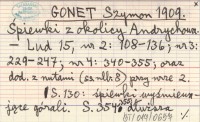 GONET Szymon 1909.
Śpiewki z okolicy Andrychowa
– Lud 15, nr 2: 108–136; nr 3:
229–247; nr 4: 340–355; oraz
dod. z nutami (ss. nlb 8) przy nrze 2.
S. 130: śpiewki wyśmiewa-
jące górali. S. 354